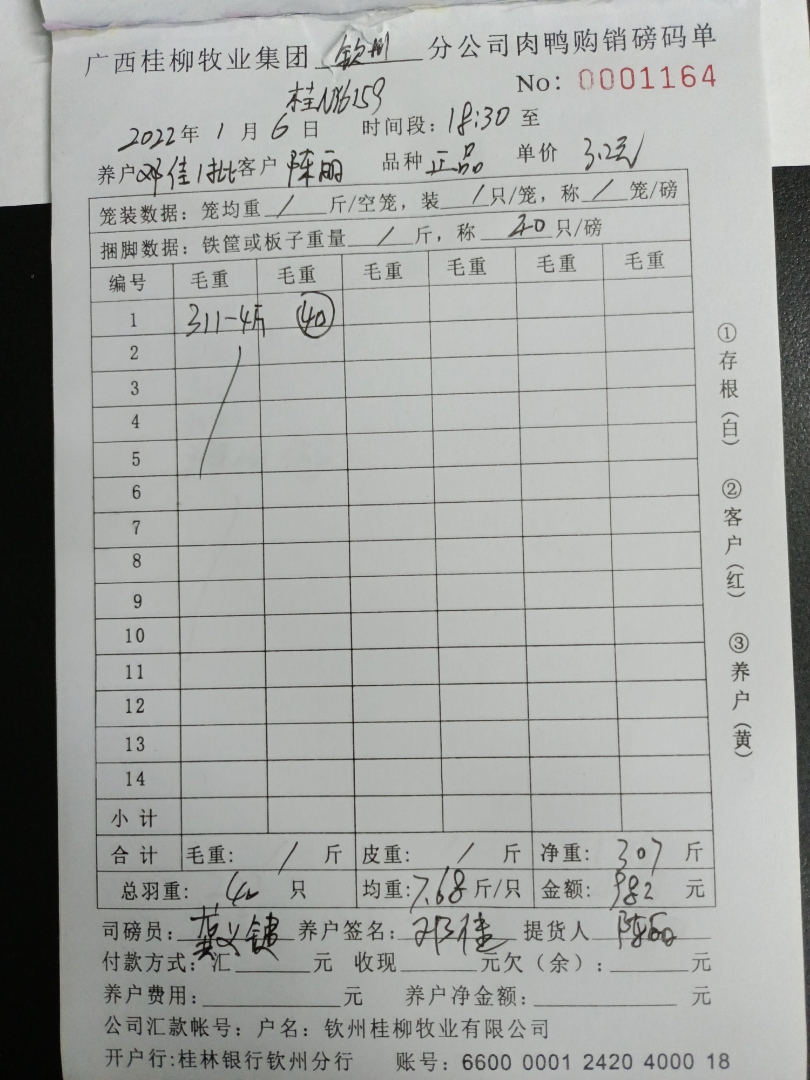 广西桂柳牧业集团 钦州 分公司肉鸭购销磅码单
桂N86159 No: 0001164
2022年 1 月 6 日 时间段: 18:30 至
养户 邓佳1批 客户 陈丽 品种 正品 单价 3.2元
笼装数据: 笼均重 / 斤/空笼, 装 / 只/笼, 称 / 笼/磅
捆脚数据: 铁筐或板子重量 / 斤, 称 40 只/磅
编号 毛重 毛重 毛重 毛重 毛重 毛重
1 311-4斤 40
2
3
4
5
6
7
8
9
10
11
12
13
14
小计
合计 毛重: / 斤 皮重: / 斤 净重: 307 斤
总羽重: 40 只 均重: 7.68 斤/只 金额: 982 元
司磅员: 养户签名: 邓佳 提货人 陈丽
付款方式: 汇 元 收现 元欠(余): 元
养户费用: 元 养户净金额: 元
公司汇款帐号: 户名: 钦州桂柳牧业有限公司
开户行:桂林银行钦州分行 账号: 6600 0001 2420 4000 18
①存根(白) ②客户(红) ③养户(黄)